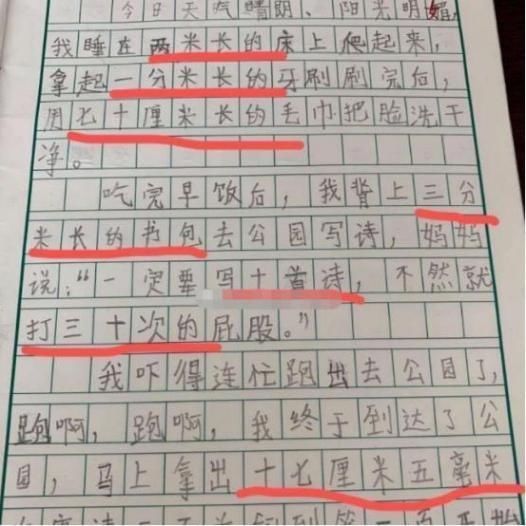 今日天气晴朗、阳光明媚,
我睡在两米长的床上爬起来,
拿起一分米长的牙刷刷完后,
用七十厘米长的毛巾把脸洗干
净。
吃完早饭后,我背上三分
米长的书包去公园写诗,妈妈
说:“一定要写十首诗,不然就
打三十次的屁股。”
我吓得连忙跑出去公园了,
跑啊,跑啊,我终于到达了公
园,马上拿出十七厘米五毫米